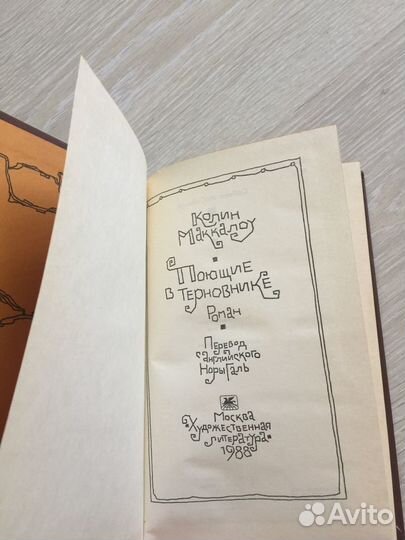 Колин
Маккалоу
Поющие
в терновнике
Роман
Перевод
с английского
Норы Галь
Москва
«Художественная
литература»
1988
Avito